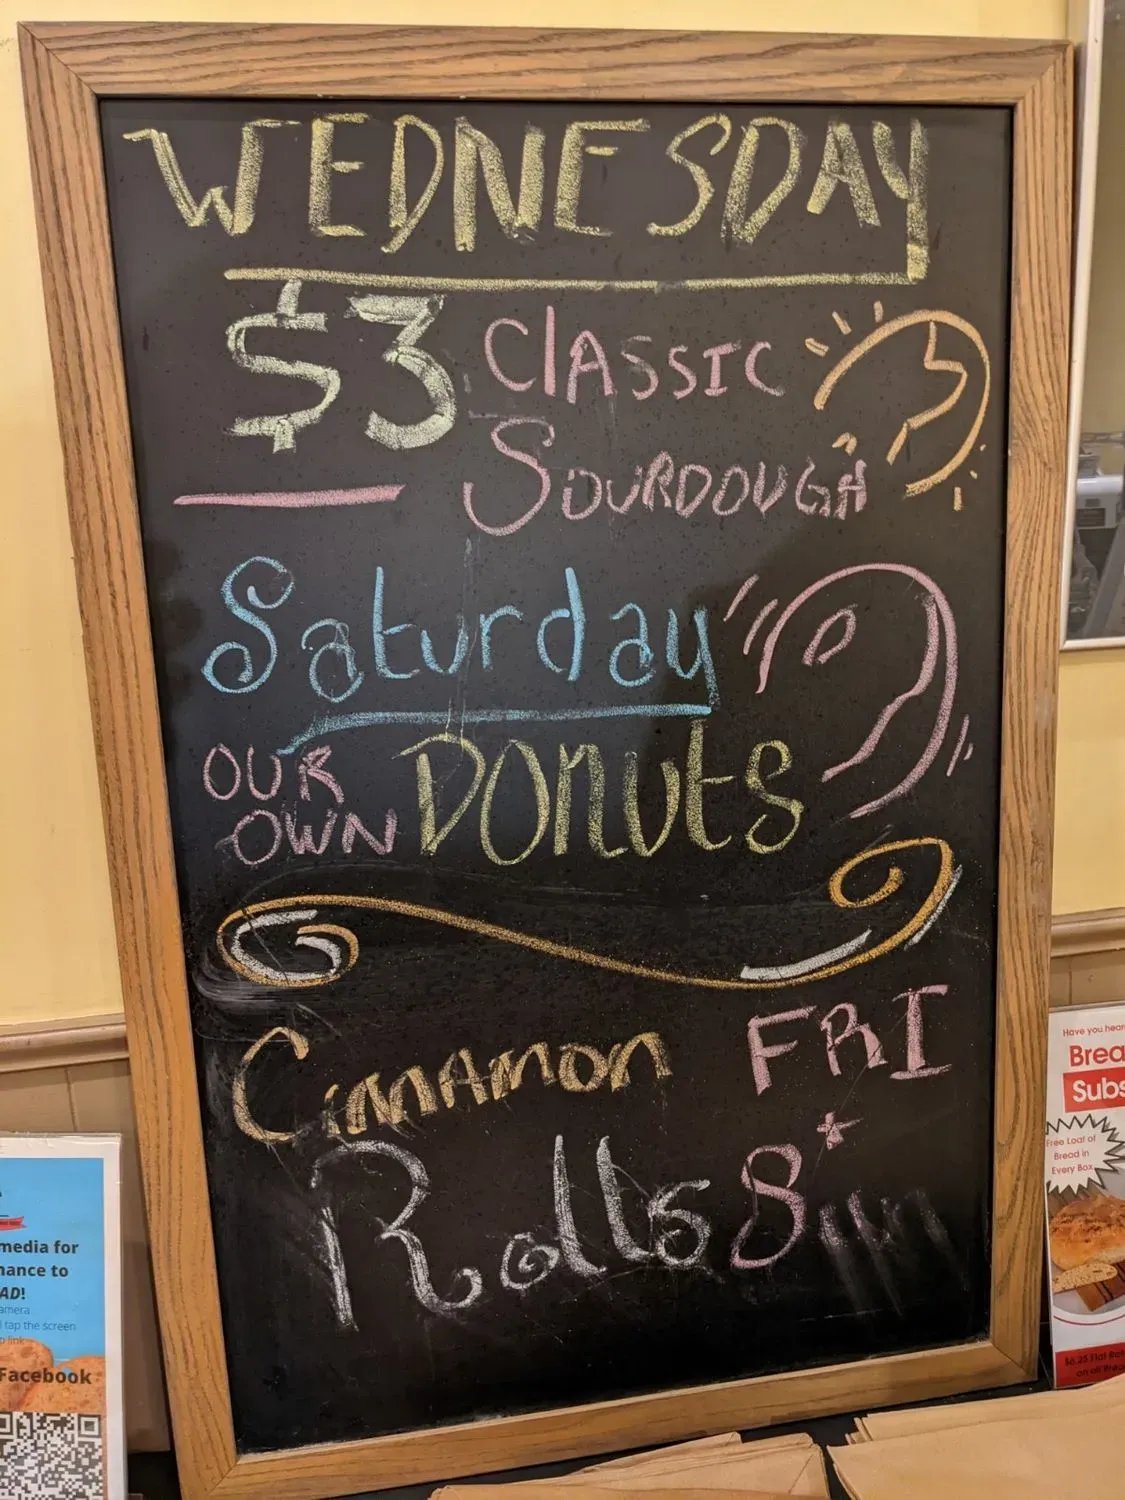 WEDNESDAY
$3 CLASSIC
SOURDOUGH
Saturday
OUR
OWN DONUTS
Cinnamon FRI
Rolls & Sun
media for
ance to
AD!
amera
tap the screen
link
Facebook
Have you hear
Brea
Subs
Free Loaf of
Bread in
Every Box
$6.25 Flat Rat
on all Breg